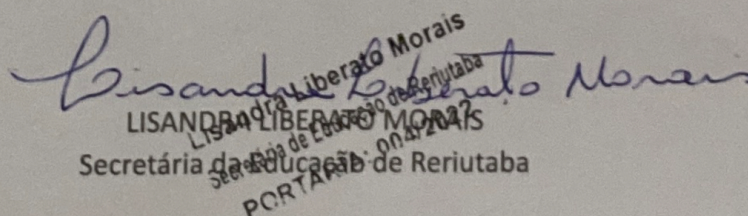 Lisandra Liberato Morais
LISANDRA LIBERATO MORAIS
Secretária da Educação de Reriutaba
Lisandra Liberato Morais
Secretária de Educação de Reriutaba
PORTARIA: 004/2022